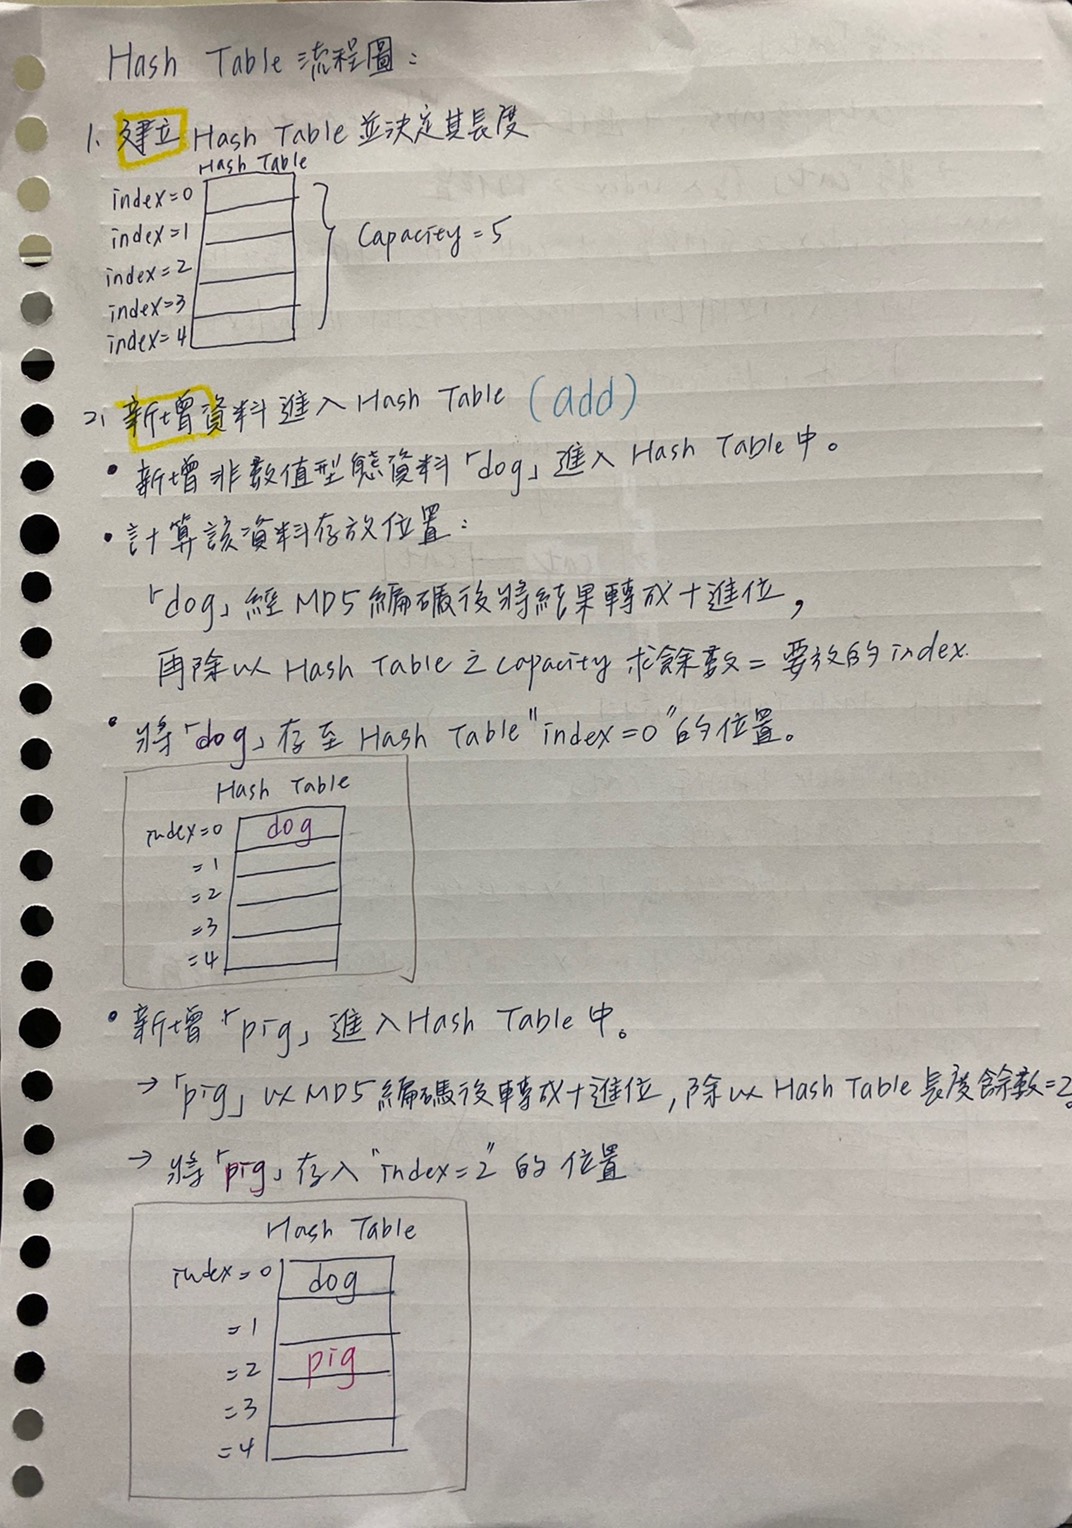 Hash Table 流程圖：
1. 建立 Hash Table 並決定其長度
Hash Table
index=0
index=1
index=2
index=3
index=4
Capacity=5
2. 新增資料進入 Hash Table (add)
• 新增非數值型態資料「dog」進入 Hash Table 中。
• 計算該資料存放位置：
「dog」經 MD5 編碼後將結果轉成十進位，
再除以 Hash Table 之 capacity 求餘數 = 要放的 index.
• 將「dog」存至 Hash Table "index=0" 的位置。
Hash Table
index=0 dog
=1
=2
=3
=4
• 新增「pig」進入 Hash Table 中。
→「pig」以 MD5 編碼後轉成十進位，除以 Hash Table 長度餘數=2。
→ 將「pig」存入 "index=2" 的位置
Hash Table
index=0 dog
=1
=2 pig
=3
=4